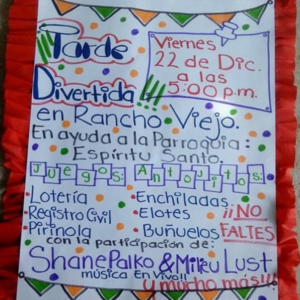 ¡¡Tarde
Divertida!!!
Viernes
22 de Dic.
a las
5:00 p.m.
en Rancho Viejo.
En ayuda a la Parroquia:
Espíritu Santo.
Juegos: Antojitos:
•Lotería
•Registro Civil
•Pirinola
•Enchiladas
•Elotes
•Buñuelos
¡¡NO
FALTES
con la participación de:
Shane Palko & Mikey Lust
música En Vivo!!
y mucho más!!!